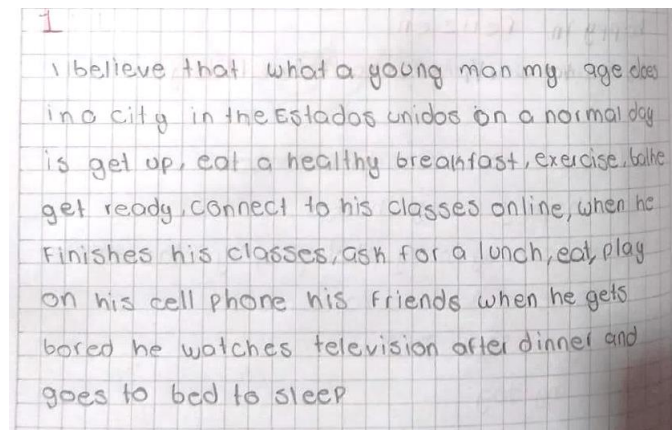 1
I believe that what a young man my age does
in a city in the Estados unidos on a normal day
is get up, eat a healthy breakfast, exercise, bathe
get ready, connect to his classes online, when he
Finishes his classes, ask for a lunch, eat, play
on his cell phone his friends when he gets
bored he watches television after dinner and
goes to bed to sleep